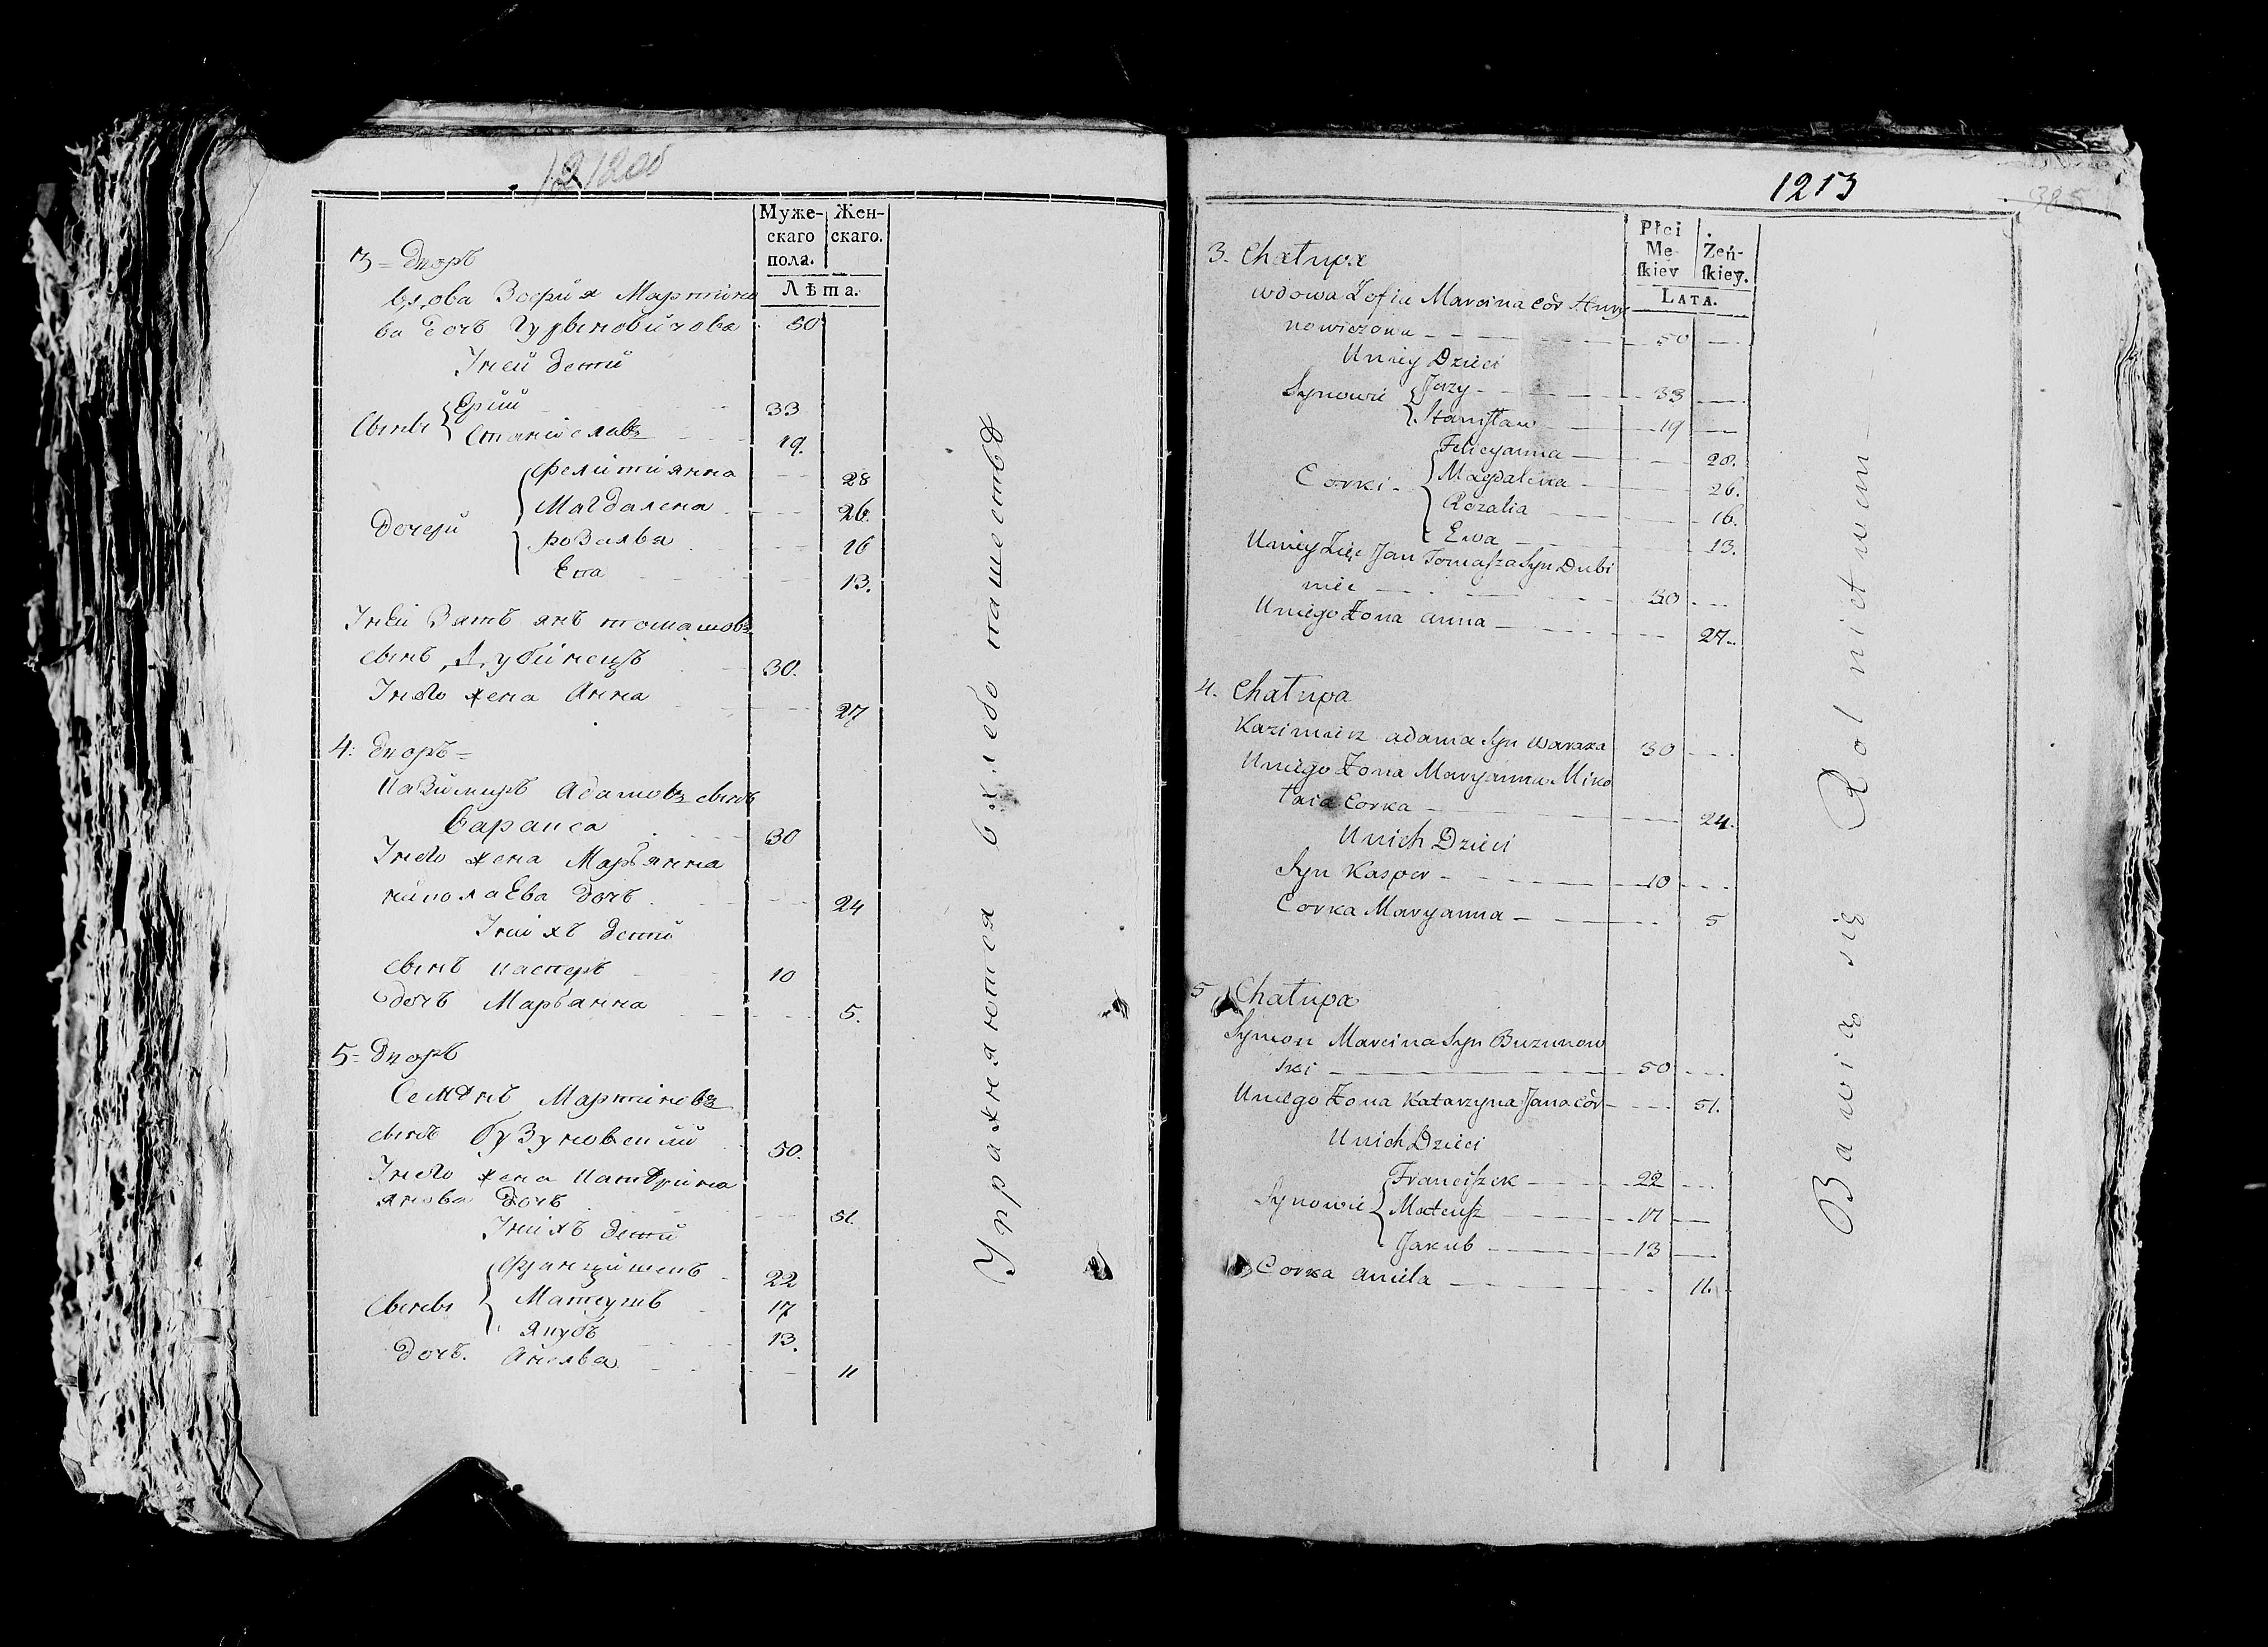 Муже-
скаго
пола.
Жен-
скаго.
Лѣта.
3 = дворъ
вдова Зофия Мартино
ва дочъ Гурыновичова 50
У ней дети
Сыны Ерий 33
Станиславъ 19.
Дочери Фелитиянна 28
Магдалена 26.
розалья 16
Ева 13.
У ней Зять янъ томашовъ
сынъ Дубинецъ 30.
У него жена Анна 27
4: дворъ =
Казимиръ Адамовъ сынъ
Варакса 30
У него жена Марьянна
николаева дочъ 24
У нихъ дети
сынъ касперъ 10
дочъ Марьянна 5.
5 = дворъ
Семонъ Мартиновъ
сынъ бузуновский 50.
У него жена Катерина
янова дочъ 51.
У нихъ дети
Сыны Францишекъ 22
Матеушъ 17
якубъ 13.
дочъ. Анелья 11
Упражняются в хлебопашестве
1213
385
Płci
Mę-
ſkiey
Żeń-
ſkiey.
LATA.
3. Chałupa
wdowa Zofia Marcina Cór Hury
nowiczowa 50
U niey Dzieci
Synowie Jerzy 33
Stanisław 19
Corki Felicyanna 28.
Magdalena 26.
Rozalia 16.
Ewa 13.
U niey Zięć Jan Tomasza Syn Dubi
niec 30
U niego Żona Anna 27.
4. Chałupa
Kazimierz Adama Syn Waraxa 30
U niego Żona Maryanna Miko
łaia Corka 24.
U nich Dzieci
Syn Kasper 10
Corka Maryanna 5
5 Chałupa
Symon Marcina Syn Buzunow
ski 50
U niego Żona Katarzyna Jana Cór 51.
U nich Dzieci
Synowie Franciszek 22
Mateusz 17
Jakub 13
Corka Aniela 11.
Bawią się Rolnictwem